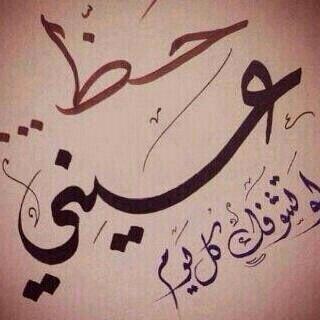 حظّ
عيني
لو تشوفك كل يوم